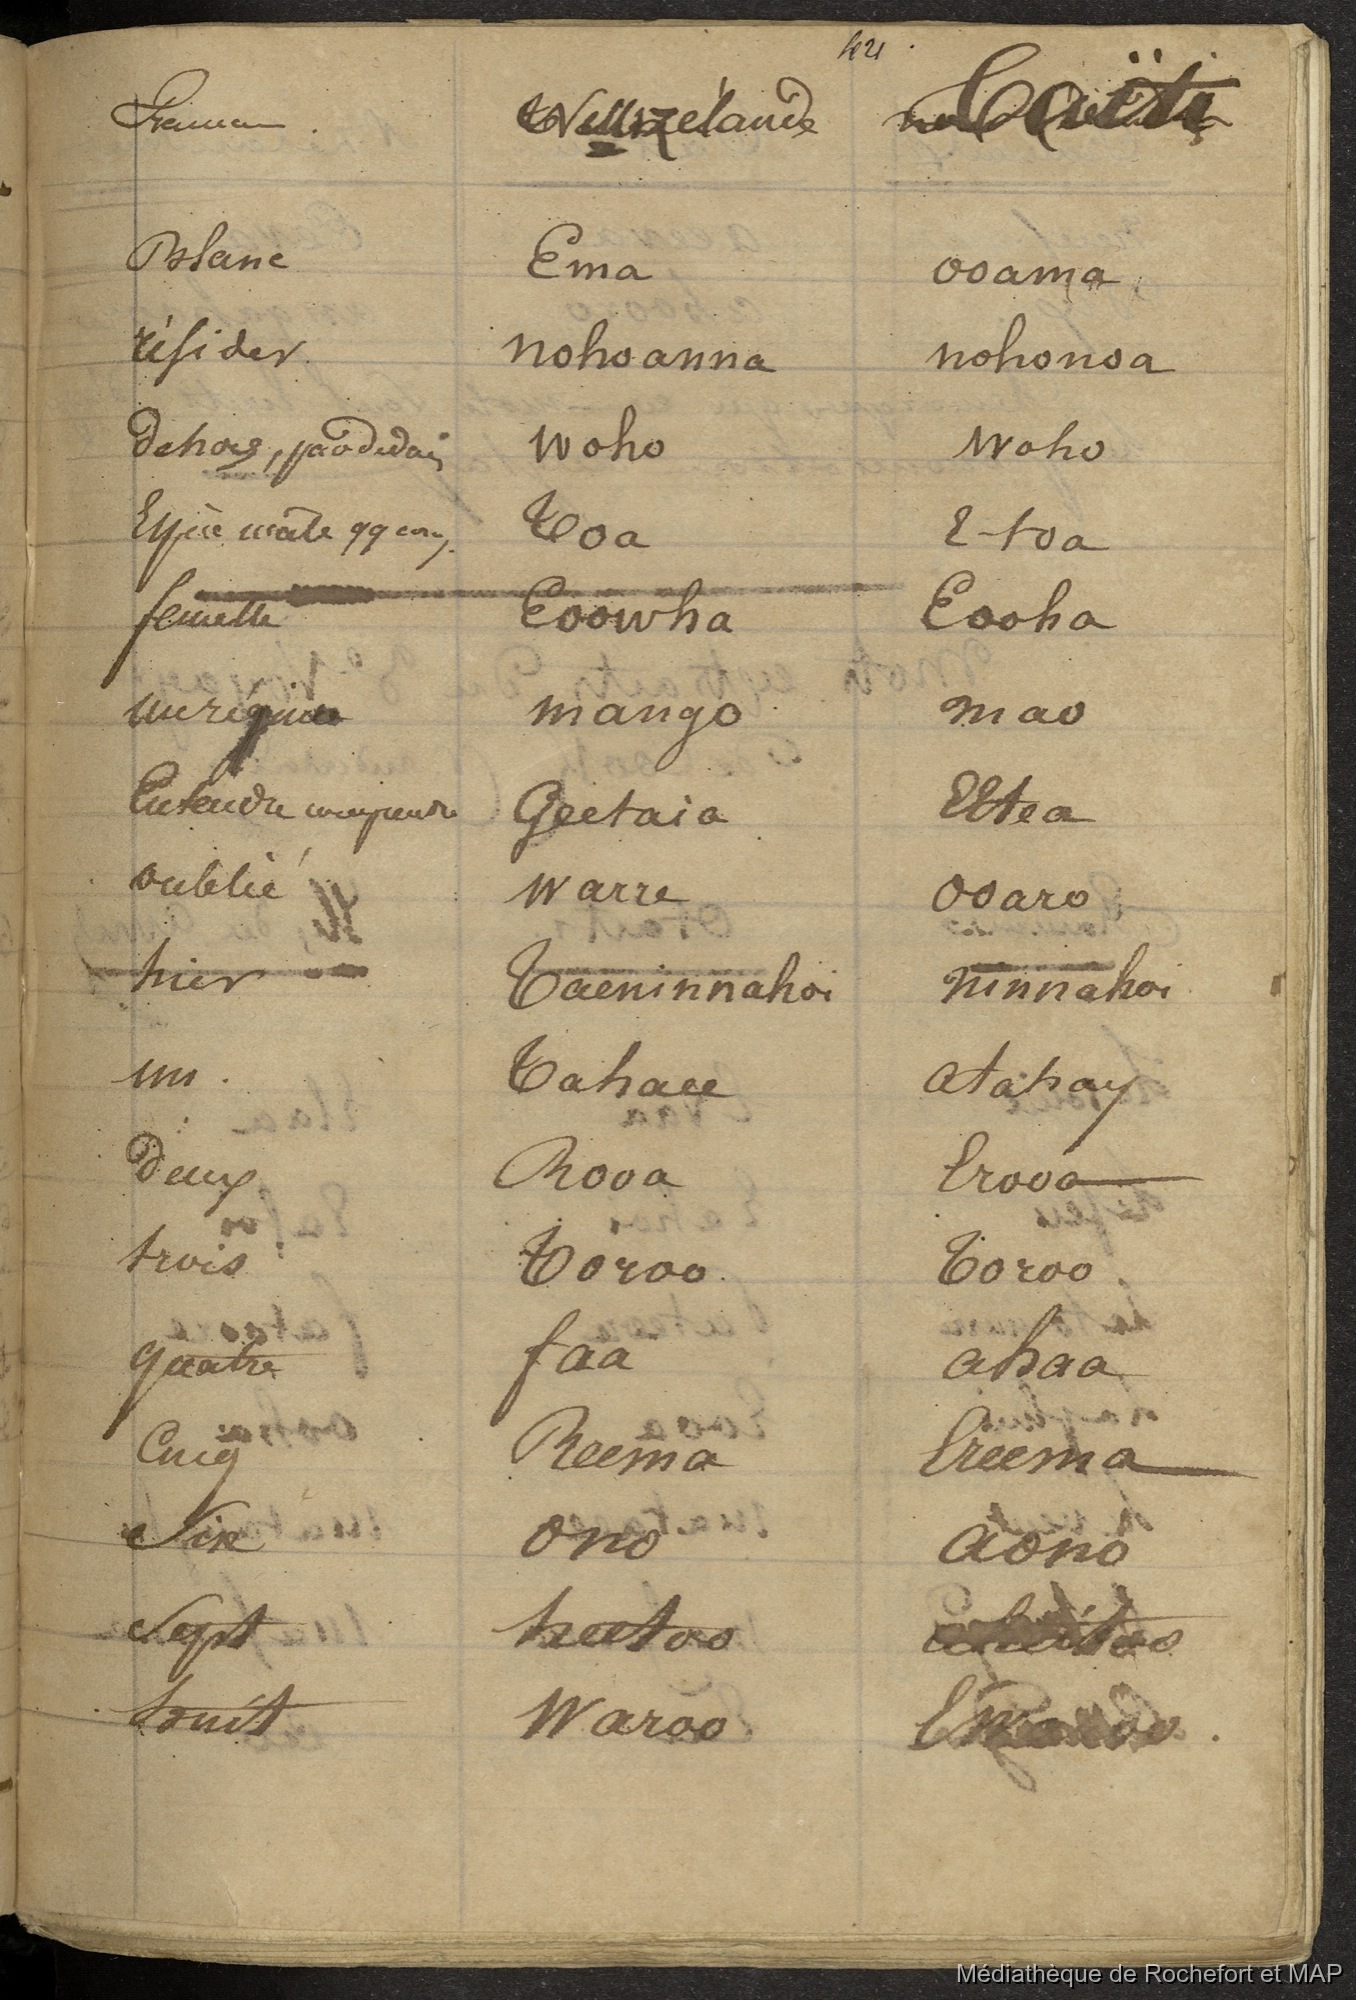 421
Français Nelle Zélande Taïti
Blanc Ema ooama
résider nohoanna nohonoa
dehors, pas dedans woho woho
Toa E-toa
femelle Eoowha Eooha
un requin mango mao
Entendre comprendre Geetaia
oublié warre ooaro
hier Taeninnahoi ninnahoi
un Tahaee atahay
deux Rooa Erooa
trois Toroo Toroo
quatre faa ahaa
Cinq Reema Ereema
Six ono aono
Sept heetoo aheitoo
huit Waroo Ewaroo
Médiathèque de Rochefort et MAP